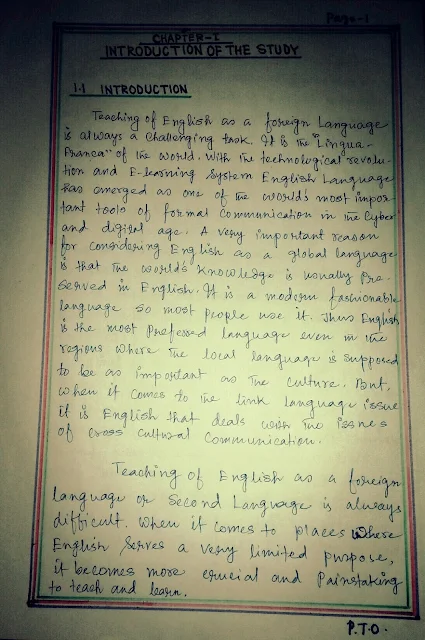 Page-1
CHAPTER-I
INTRODUCTION OF THE STUDY
1.1 INTRODUCTION
Teaching of English as a foreign Language
is always a challenging task. It is the "Lingua-
Franca" of the world. With the technological revolu-
tion and E-learning System English Language
has emerged as one of the world's most impor-
tant tools of formal Communication in the Cyber
and digital age. A very important reason
for considering English as a global language
is that the world's Knowledge is usually pre-
served in English. It is a modern fashionable
language so most people use it. Thus English
is the most preferred language even in the
regions where the local language is supposed
to be as important as the culture. But,
when it comes to the link language issue
it is English that deals with the issues
of cross cultural Communication.
Teaching of English as a foreign
language or Second Language is always
difficult. When it comes to places where
English serves a very limited purpose,
it becomes more crucial and Painstaking
to teach and learn.
P.T.O.